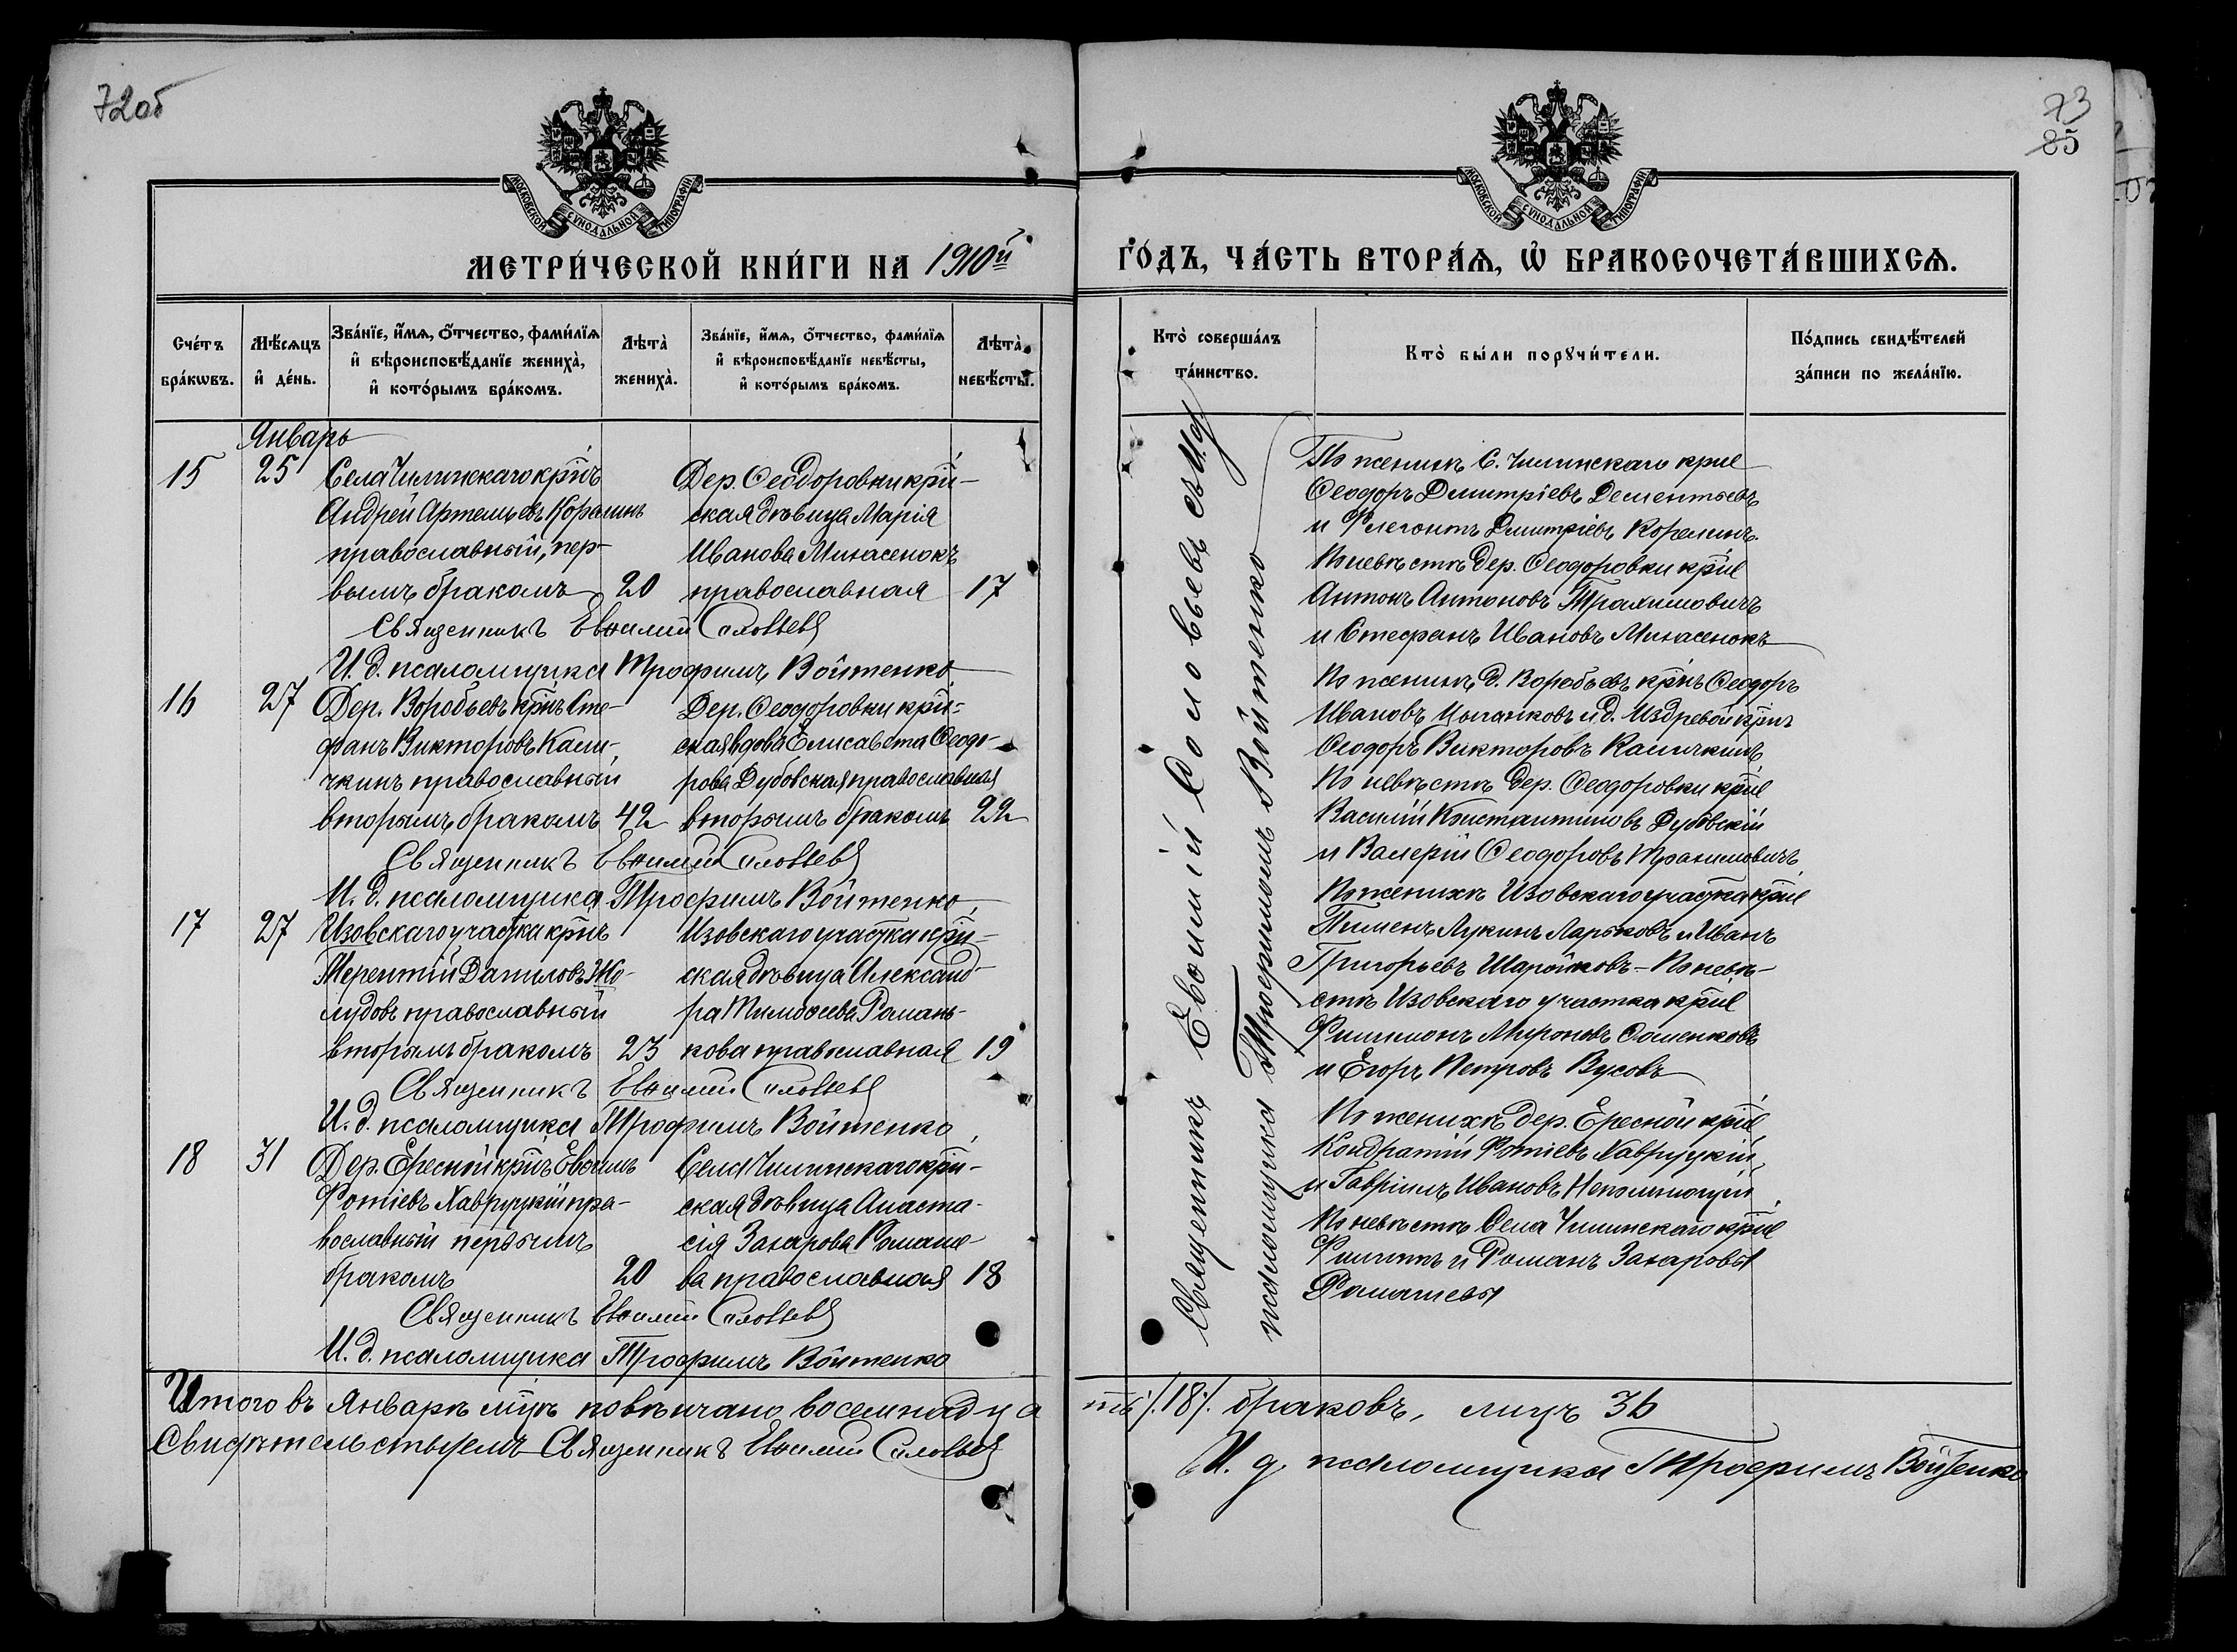 72об
МОСКОВСКОЙ СѴНОДАЛЬНОЙ ТИПОГРАФІИ
МЕТРИ́ЧЕСКОЙ КНИ́ГИ НА 1910й
Сче́тъ бра́кѡвъ.
Мѣ́сяцъ и҆ де́нь.
Зва́нїе, и҆́мѧ, ѻ҆́тчество, фами́лїѧ
и҆ вѣроисповѣ́данїе жениха̀,
и҆ кото́рымъ бра́комъ.
Лѣта̀ жениха̀.
Зва́нїе, и҆́мѧ, ѻ҆́тчество, фами́лїѧ
и҆ вѣроисповѣ́данїе невѣ́сты,
и҆ кото́рымъ бра́комъ.
Лѣта̀ невѣ́сты.
Январь
15 25 Села Чилинскаго кр̃нъ
Андрей Артемьевъ Корелинъ
православный, пер-
вымъ бракомъ 20
Дер. Ѳеодоровки кр̃н-
ская дѣвица Марія
Иванова Минасенокъ
православная 17
Священникъ Евѳимій Соловьевъ
И. д. псаломщика Трофимъ Войтенко
16 27 Дер. Воробьевъ кр̃нъ Сте-
фанъ Викторовъ Кали-
чкинъ православный
вторымъ бракомъ 42
Дер. Ѳеодоровки кр̃н-
ская вдова Елисавета Ѳеодо-
рова Дубовская православная
вторымъ бракомъ 22
Священникъ Евѳимій Соловьевъ
И. д. псаломщика Трофимъ Войтенко
17 27 Изовскаго участка кр̃нъ
Терентій Даниловъ Жо-
лудовъ православный
вторымъ бракомъ 23
Изовскаго участка кр̃н-
ская дѣвица Александ-
ра Тимоѳеева Романь-
кова православная 19
Священникъ Евѳимій Соловьевъ
И. д. псаломщика Трофимъ Войтенко
18 31 Дер. Ересной кр̃нъ Евѳимъ
Фотіевъ Хавруцкій пра-
вославный первымъ
бракомъ 20
Села Чилинскаго кр̃н-
ская дѣвица Анаста-
сія Захарова Романе-
ва православная 18
Священникъ Евѳимій Соловьевъ
И. д. псаломщика Трофимъ Войтенко
Итого въ Январѣ мц̃ѣ повѣнчано восемнадца
Свидѣтельствуемъ Священникъ Евѳимій Соловьевъ
73
85
МОСКОВСКОЙ СѴНОДАЛЬНОЙ ТИПОГРАФІИ
ГО́ДЪ, ЧА́СТЬ ВТОРА́Ѧ, Ѡ҆ БРАКОСОЧЕТА́ВШИХСѦ.
Кто̀ соверша́лъ та́инство.
Кто̀ бы́ли порꙋчи́тели.
По́дпись свидѣ́телей
за́писи по жела́нїю.
Священникъ Евѳимій Соловьевъ съ И.д.
псаломщика Трофимомъ Войтенко
По женихѣ С. Чилинскаго кр̃не
Ѳеодоръ Димитріевъ Дементьевъ
и Флегонтъ Димитріевъ Корелинъ.
По невѣстѣ Дер. Ѳеодоровки кр̃не
Антонъ Антоновъ Трахимовичъ
и Стефанъ Ивановъ Минасенокъ
По женихѣ д. Воробьевъ кр̃нъ Ѳеодоръ
Ивановъ Цыганковъ и д. Издревой кр̃нъ
Ѳеодоръ Викторовъ Каличкинъ
По невѣстѣ Дер. Ѳеодоровки кр̃не
Василій Константиновъ Дубовскій
и Валерій Ѳеодоровъ Трахимовичъ
По женихѣ Изовскаго участка кр̃не
Пименъ Лукинъ Ларьковъ и Иванъ
Григорьевъ Шаройковъ - По невѣ-
стѣ Изовскаго участка кр̃не
Филимонъ Мироновъ Ѳоменковъ
и Егоръ Петровъ Вусовъ
По женихѣ дер. Ересной кр̃не
Кондратій Фотіевъ Хавруцкій
и Гавріилъ Ивановъ
По невѣстѣ Села Чилинскаго кр̃не
Филиппъ и Романъ Захаровы
Романевы
ть /.18./. браковъ, лицъ 36
И. д. псаломщика Трофимъ Войтенко